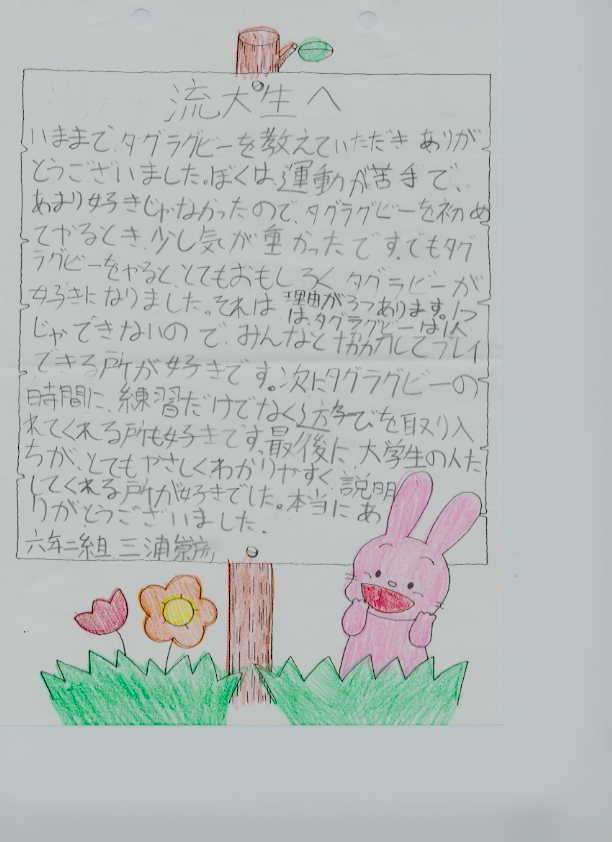 流大生へ
いままで、タグラグビーを教えていただき ありが
とうございました。ぼくは、運動が苦手で、
あまり好きじゃなかったので、タグラグビーを初め
てやるとき、少し気が重かったです。でもタグ
ラグビーをやると、とてもおもしろく、タグラビーが
好きになりました。それは、理由が3つあります。1つ
は、タグラグビーは1人
じゃできないので、みんなと協力してプレイ
できる所が好きです。次にタグラグビーの
時間に、練習だけでなく遊びを取り入
れてくれる所も好きです。最後に、大学生の人た
ちが、とてもやさしくわかりやすく、説明
してくれる所が好きでした。本当に あ
りがとうございました。
六年二組 三浦